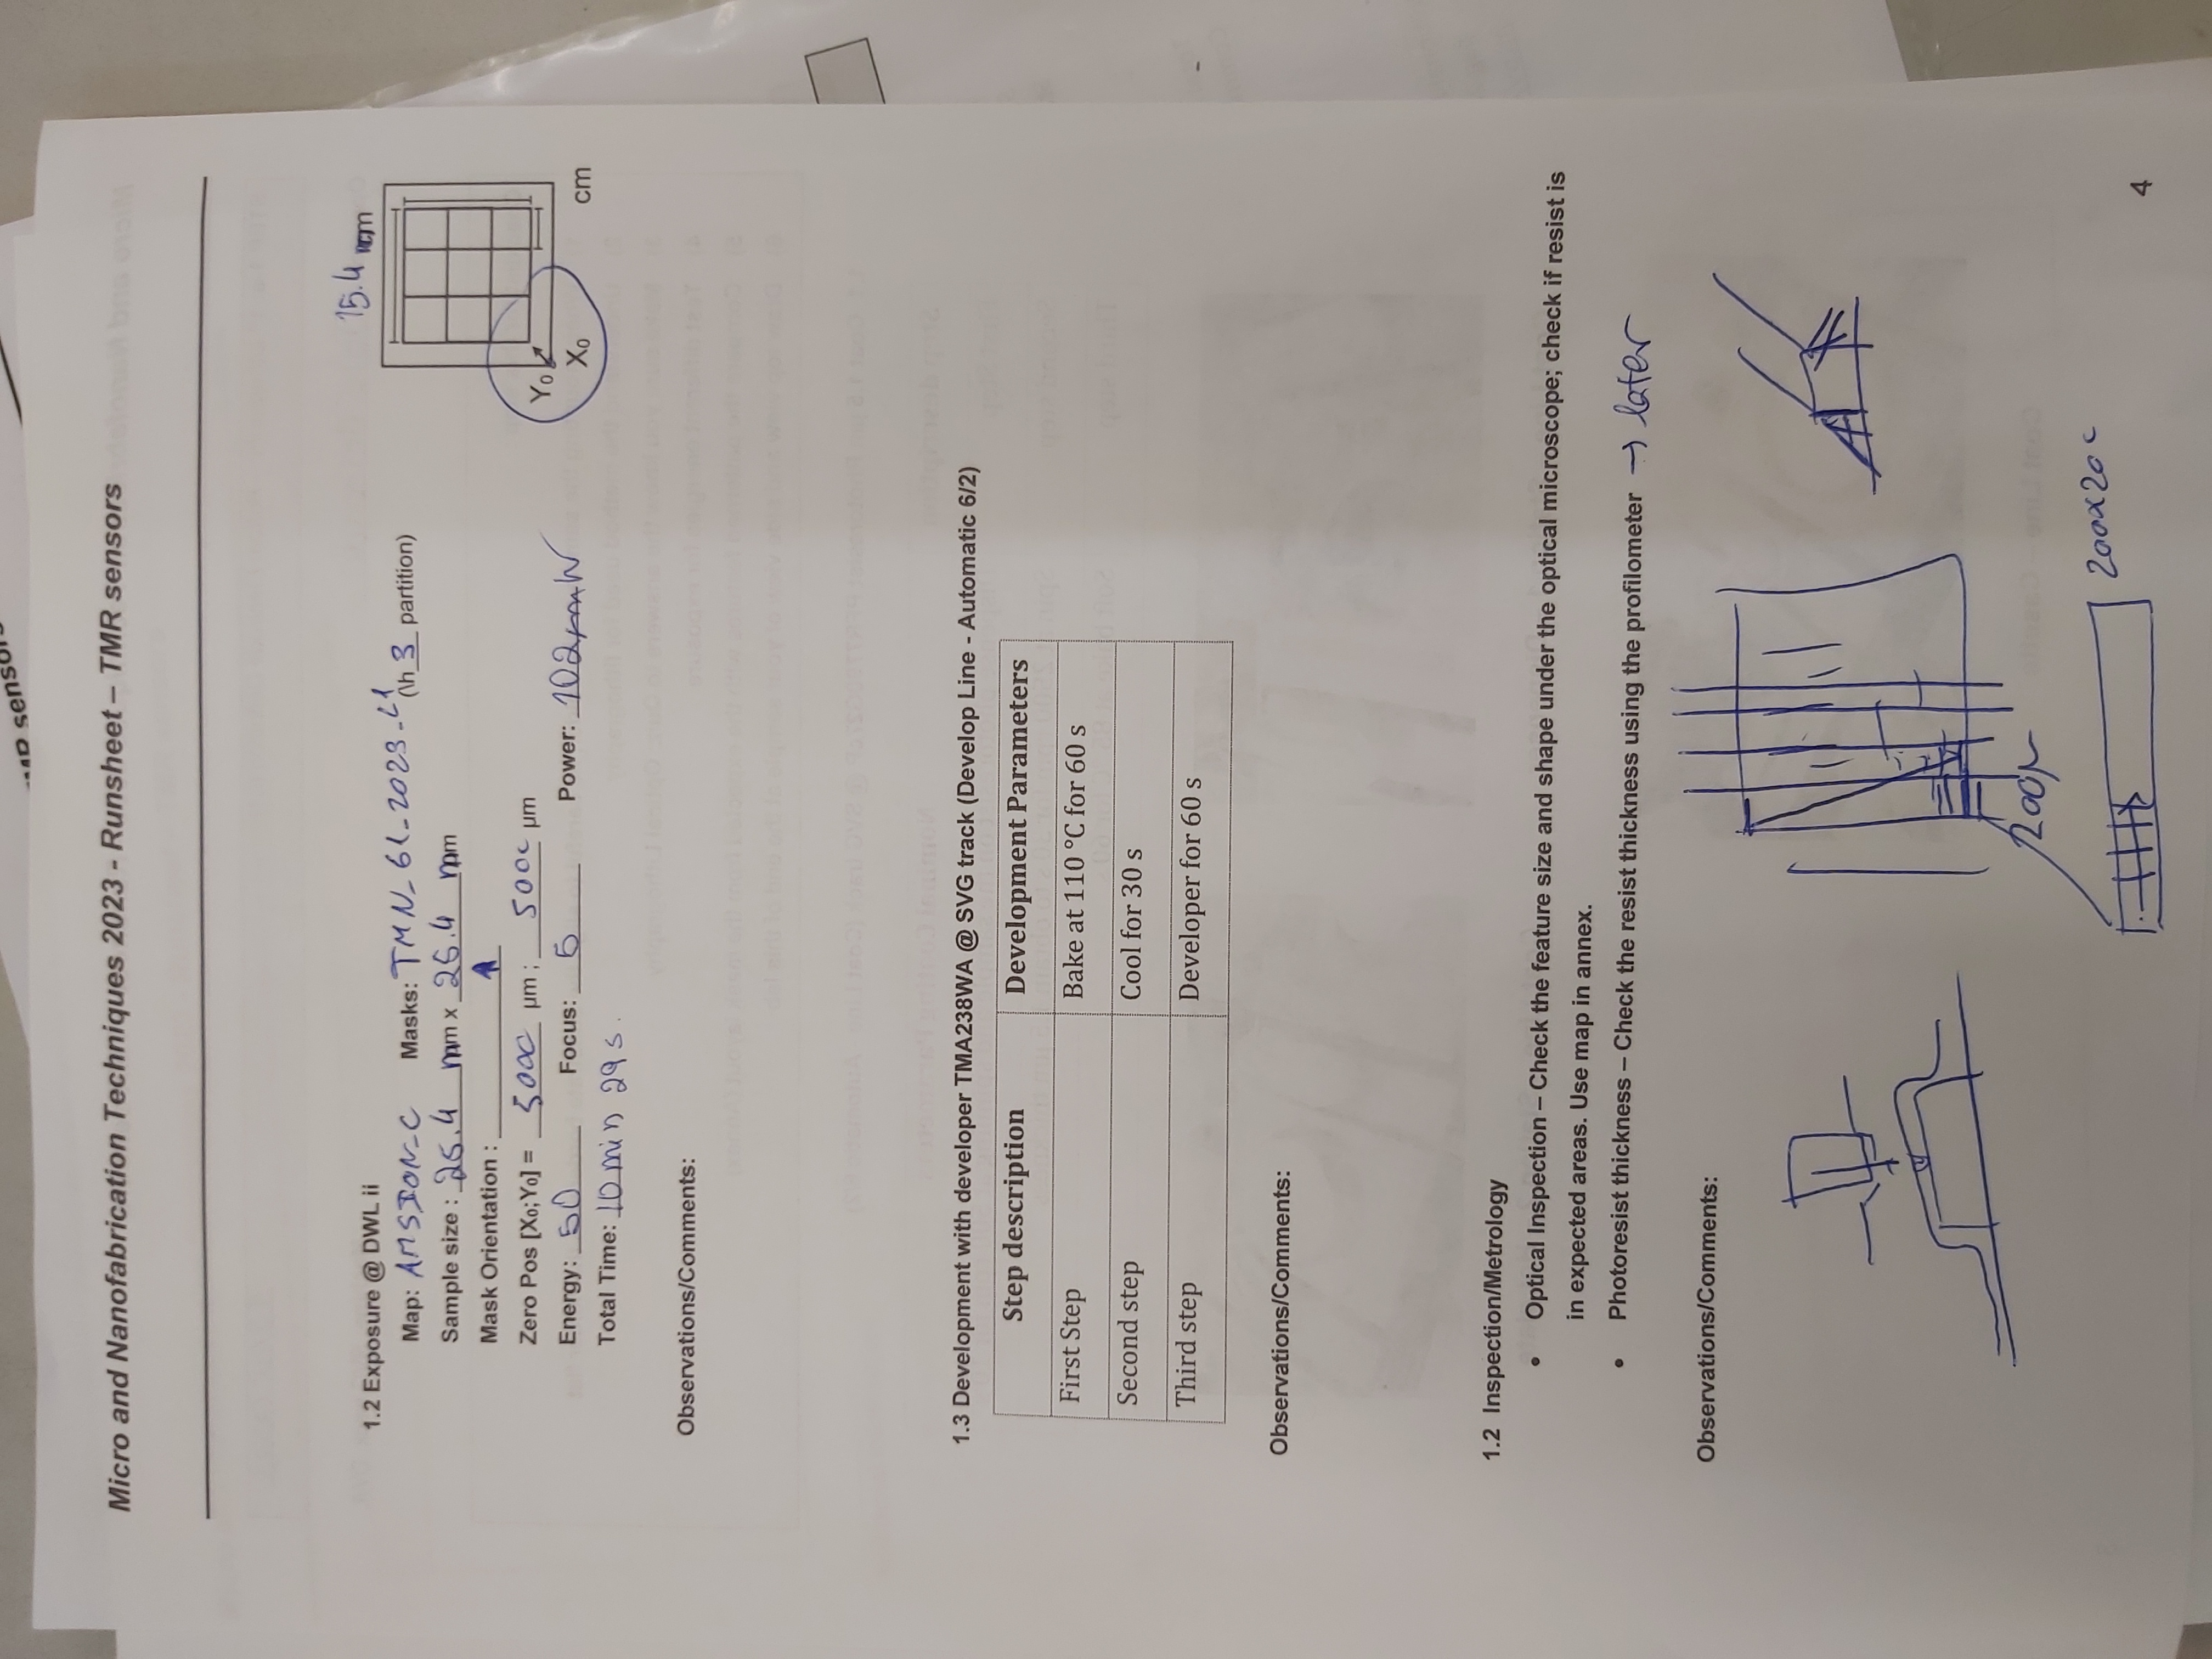 MR sensors
Micro and Nanofabrication Techniques 2023 - Runsheet – TMR sensors
15.4 mm
1.2 Exposure @ DWL ii
Map: AMSION_C Masks: TMN_61_2023_L1 (\h 3 partition)
Sample size : 25.4 mm x 25.4 mm
Mask Orientation :
Zero Pos [X₀;Y₀] = 5000 µm ; 5000 µm
Y₀
X₀
cm
Energy: 50 Focus: 5 Power: 102 mW
Total Time: 10 min 29 s.
Observations/Comments:
1.3 Development with developer TMA238WA @ SVG track (Develop Line - Automatic 6/2)
Step description Development Parameters
First Step Bake at 110 °C for 60 s
Second step Cool for 30 s
Third step Developer for 60 s
Observations/Comments:
1.2 Inspection/Metrology
• Optical Inspection – Check the feature size and shape under the optical microscope; check if resist is
in expected areas. Use map in annex.
• Photoresist thickness – Check the resist thickness using the profilometer → later
Observations/Comments:
200µ
200x200
4